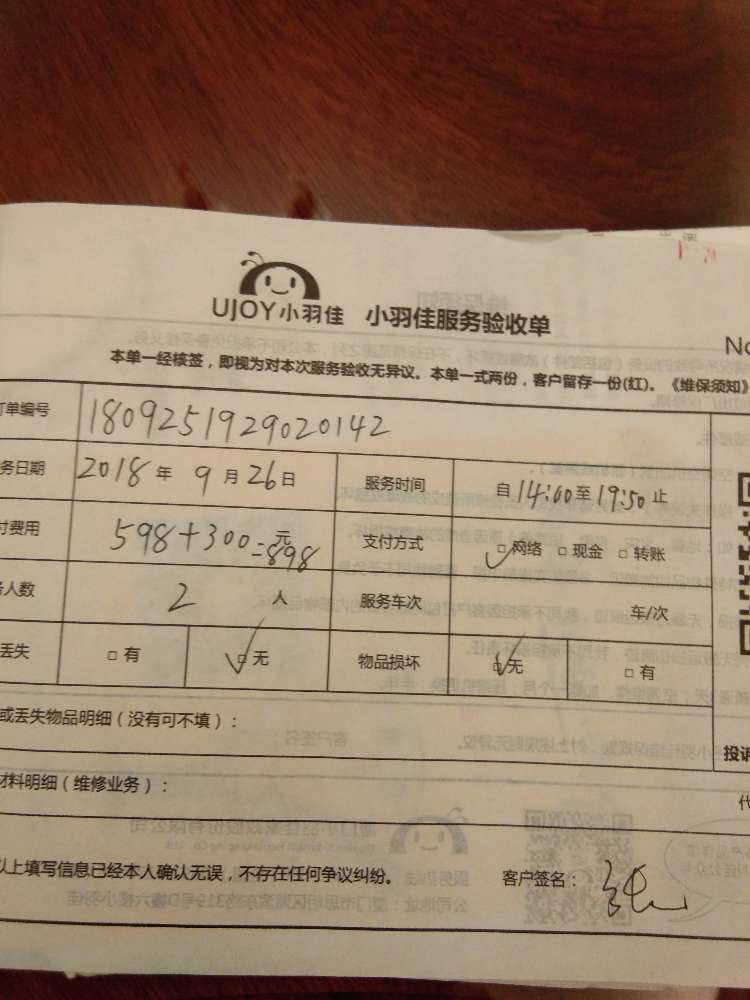 UJOY小羽佳 小羽佳服务验收单
No
本单一经核签，即视为对本次服务验收无异议。本单一式两份，客户留存一份(红)。《维保须知》
订单编号 1809251929020142
务日期 2018 年 9 月 26 日 服务时间 自 14:00 至 19:50 止
付费用 598+300=898 元 支付方式 □网络 □现金 □转账
人数 2 人 服务车次 车/次
丢失 □有 □无 物品损坏 □无 □有
或丢失物品明细（没有可不填）：
投诉
材料明细（维修业务）：
以上填写信息已经本人确认无误，不存在任何争议纠纷。 客户签名：